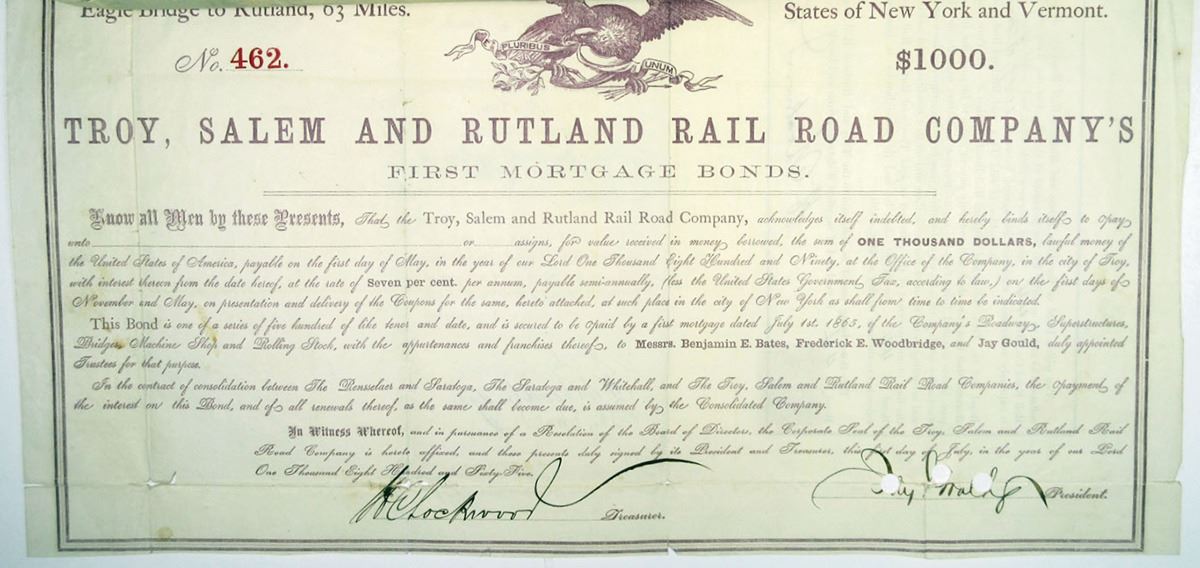 Eagle Bridge to Rutland, 63 Miles.
States of New York and Vermont.
PLURIBUS
UNUM
No. 462.
$1000.
TROY, SALEM AND RUTLAND RAIL ROAD COMPANY'S
FIRST MORTGAGE BONDS.
Know all Men by these Presents, That the Troy, Salem and Rutland Rail Road Company, acknowledges itself indebted, and hereby binds itself to pay
unto or assigns, for value received in money borrowed, the sum of ONE THOUSAND DOLLARS, lawful money of
the United States of America, payable on the first day of May, in the year of our Lord One Thousand Eight Hundred and Ninety, at the Office of the Company, in the city of Troy,
with interest thereon from the date hereof, at the rate of Seven per cent. per annum, payable semi-annually, (less the United States Government Tax, according to law,) on the first days of
November and May, on presentation and delivery of the Coupons for the same, hereto attached, at such place in the city of New York as shall from time to time be indicated.
This Bond is one of a series of five hundred of like tenor and date, and is secured to be paid by a first mortgage dated July 1st. 1865, of the Company's Roadway, Superstructures,
Bridges, Machine Shop and Rolling Stock, with the appurtenances and franchises thereof, to Messrs. Benjamin E. Bates, Frederick E. Woodbridge, and Jay Gould, duly appointed
Trustees for that purpose.
In the contract of consolidation between The Rensselaer and Saratoga, The Saratoga and Whitehall, and The Troy, Salem and Rutland Rail Road Companies, the payment of
the interest on this Bond, and of all renewals thereof, as the same shall become due, is assumed by the Consolidated Company.
In Witness Whereof, and in pursuance of a Resolution of the Board of Directors, the Corporate Seal of the Troy, Salem and Rutland Rail
Road Company is hereto affixed, and these presents duly signed by its President and Treasurer, this first day of July, in the year of our Lord
One Thousand Eight Hundred and Sixty-Five.
Lockwood Treasurer.
Jay Gould President.